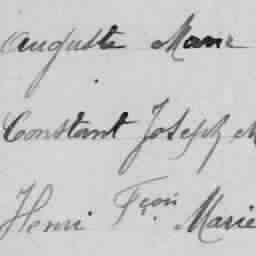 Auguste Marie
Constant Joseph M
Henri Fçois Marie